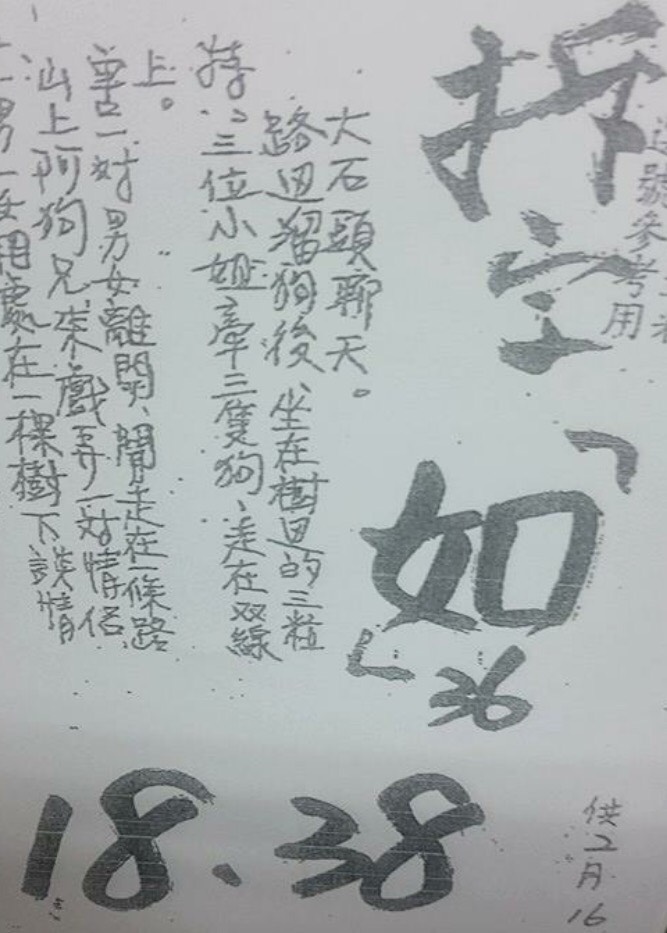 號參考用
拆字
「如」
36
女用處在一棵樹下談情
山上阿狗兄來戲弄一对情侶
害一对男女離開、閒走在一條路
上。
特:三位小姐牽三隻狗、走在双線
路边溜狗後、坐在樹边的三粒
大石頭聊天。
18.38
供2月16